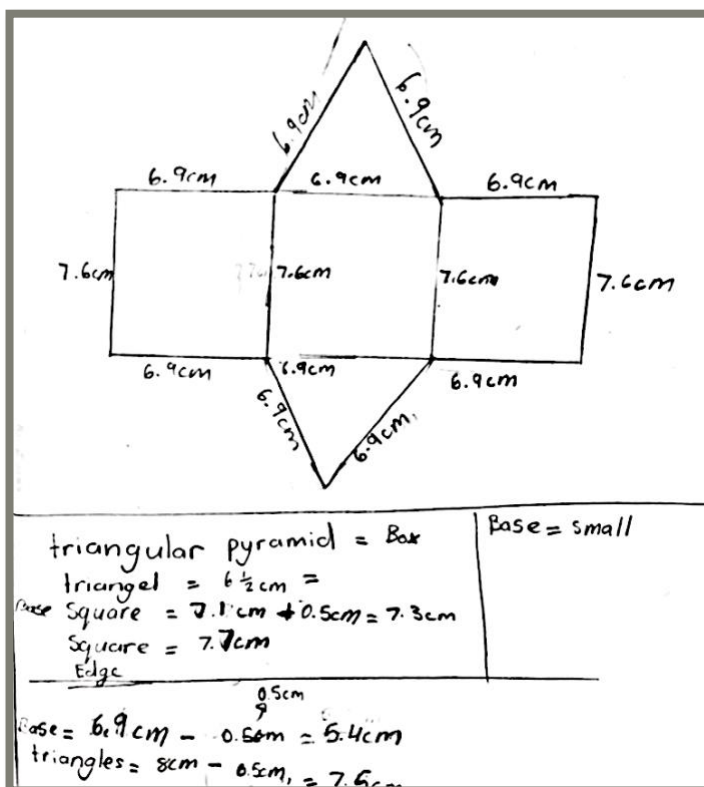 6.9cm 6.9cm
6.9cm 6.9cm 6.9cm
7.6cm 7.6cm 7.6cm 7.6cm
6.9cm 6.9cm 6.9cm
6.9cm 6.9cm
triangular pyramid = Box
triangel = 6 1/2 cm =
Base Square = 7.1cm + 0.5cm = 7.3cm
Square = 7.7cm
Edge
Base = small
0.5cm
Base = 6.9cm - 0.5cm = 5.4cm
triangles = 8cm - 0.5cm, = 7.5cm